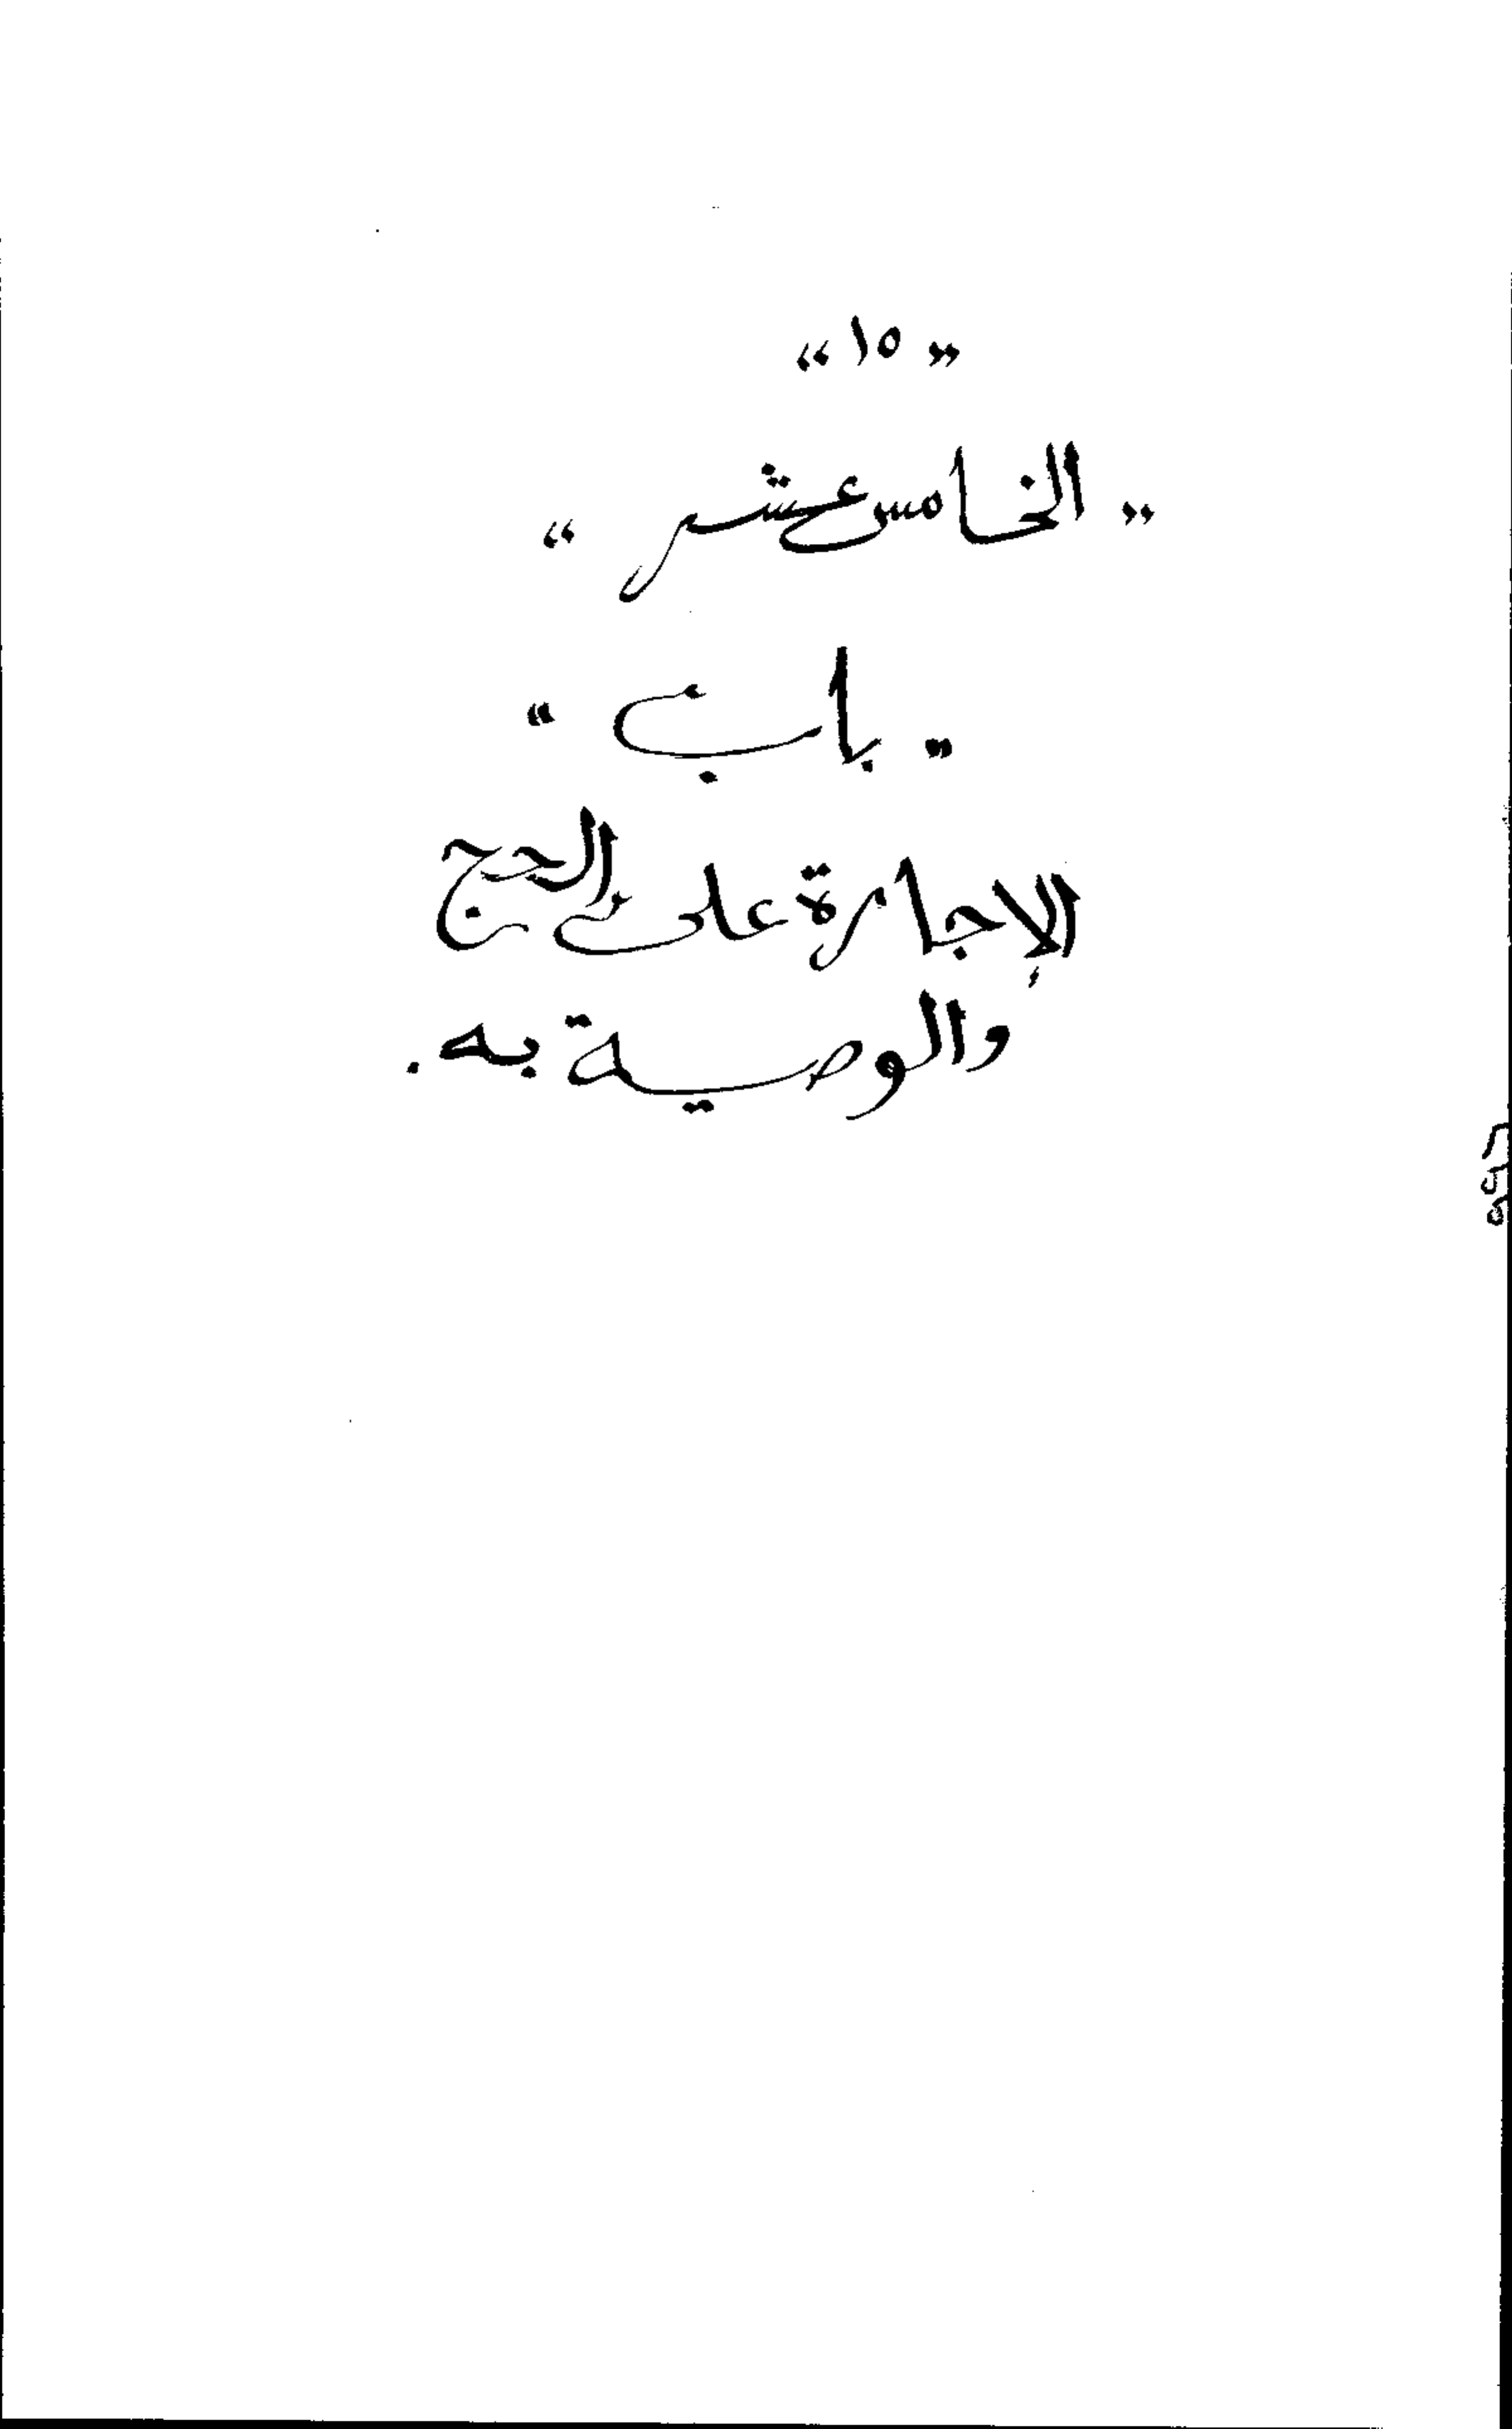 " ١٥ "
" الخامس عشر "
" باب "
الإجارة على الحج
والوصية به .